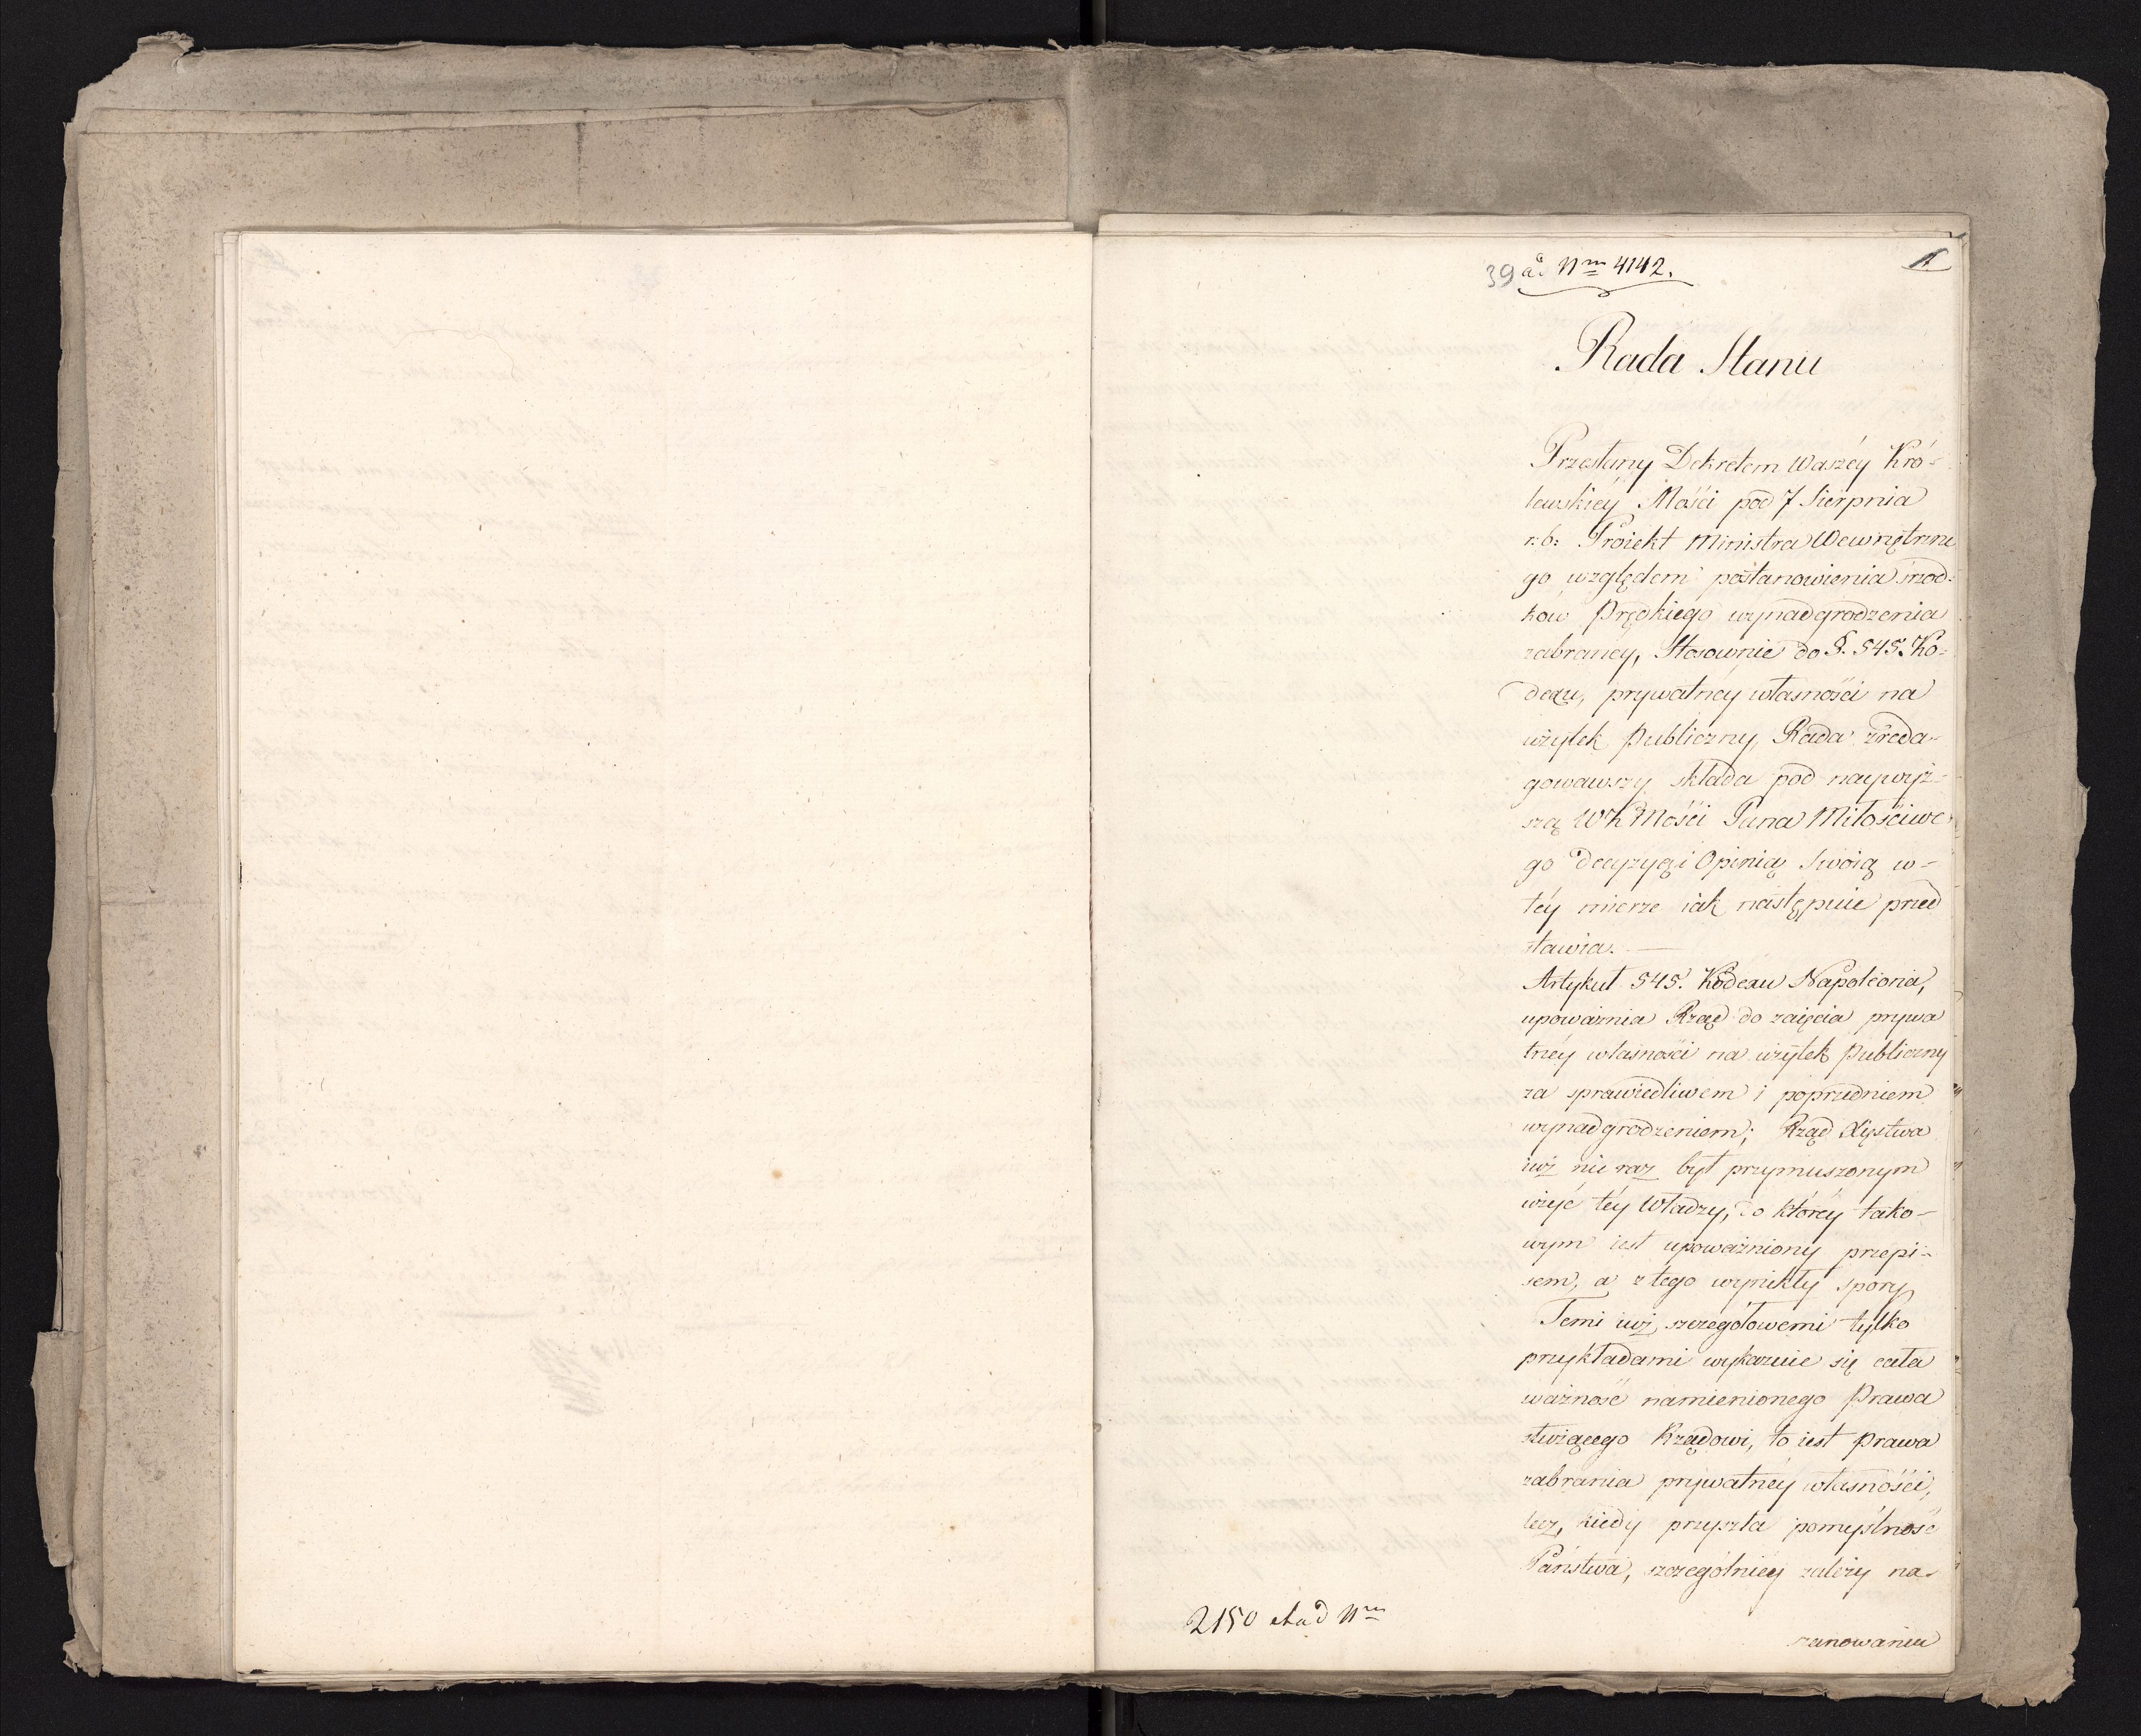 39 ad Nm 4142.
Rada Stanu
Przesłany Dekretem Waszéy Kró-
lewskiéy Mości pod 7 Sierpnia
r: b: Proiekt Ministra Wewnętrzne
go względem postanowienia śrzod-
kow Prędkiego wynadgrodzenia
zabraney, Stosownie do §. 545. Ko-
dexu, prywatnéy własności na
użytek Publiczny, Rada zreda-
gowawszy składa pod naywyż-
szą WKMości Pana Miłościwe
go decyzyą i Opinią Swoią w-
téy mierze iak następuie przed
stawia. —
Artykuł 545. Kodexu Napoleona,
upoważnia Rząd do zaięcia prywa
tnéy własności na użytek Publiczny
za sprawiedliwem i poprzedniem
wynadgrodzeniem; Rząd Xięstwa
iuż nie raz był przymuszonym
użyć téy Władzy, do któréy tako-
wym iest upoważniony przepi-
sem, a z tego wynikły spory
Temi iuż szczegółowemi tylko
przykładami wykazuie się cała
ważność namienionego Prawa
służącego Rządowi, to iest Prawa
zabrania prywatnéy własności,
lecz, kiedy przyszła pomyślność
Państwa, szczególniey zależy na
2150 et ad Nm
szanowaniu